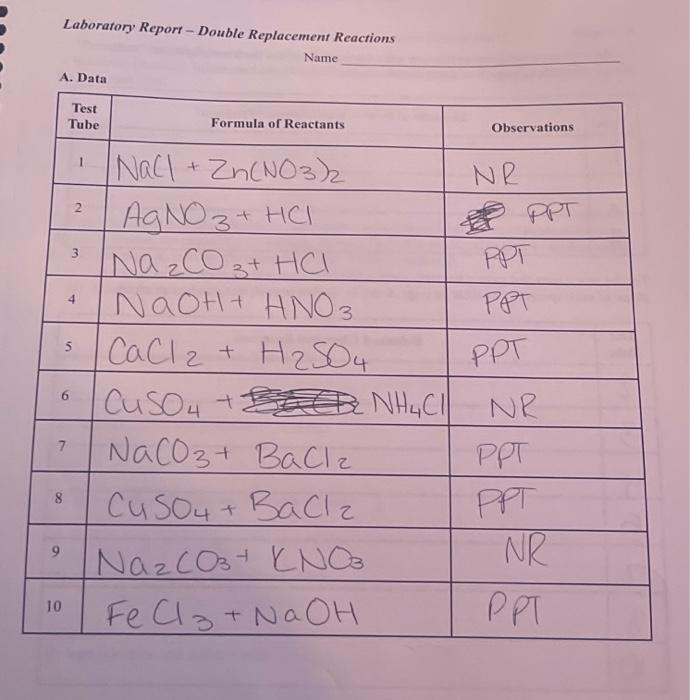 Laboratory Report – Double Replacement Reactions
Name
A. Data
Test Tube Formula of Reactants Observations
1 NaCl + Zn(NO3)2 NR
2 AgNO3 + HCl PPT
3 Na2CO3 + HCl PPT
4 NaOH + HNO3 PPT
5 CaCl2 + H2SO4 PPT
6 CuSO4 + NH4Cl NR
7 NaCO3 + BaCl2 PPT
8 CuSO4 + BaCl2 PPT
9 Na2CO3 + KNO3 NR
10 FeCl3 + NaOH PPT